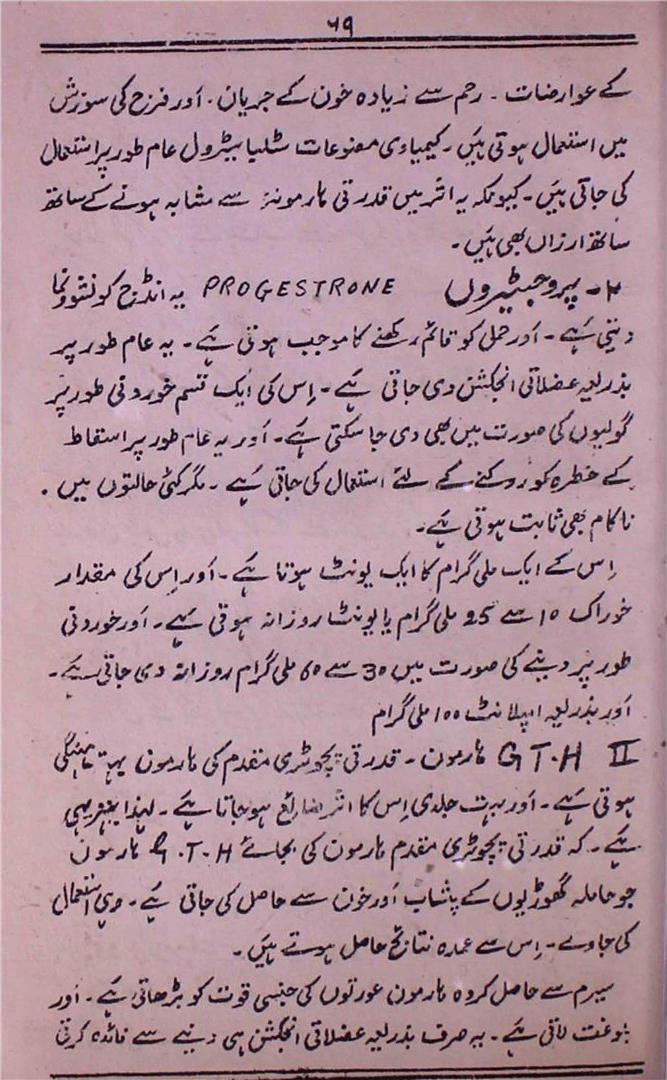 ۶۹
کے عوارضات ۔ رحم سے زیادہ خون کے جریان ۔ اور فرج کی سوزش
میں استعمال ہوتی ہیں ۔ کیمیاوی مصنوعات سٹلبابیٹرول عام طور پر استعمال
کی جاتی ہیں ۔ کیونکہ یہ اثر میں قدرتی ہارمونز سے مشابہ ہونے کے ساتھ
ساتھ ارزاں بھی ہیں ۔
۲ ۔ پروجیٹیروں PROGESTRONE یہ انڈرح کو نشوونما
دیتی ہے ۔ اور حمل کو قائم رکھنے کا موجب ہوتی ہے ۔ یہ عام طور پر
بذریعہ عضلاتی انجکشن دی جاتی ہے ۔ اِس کی ایک قسم خوردنی طور پر
گولیوں کی صورت میں بھی دی جا سکتی ہے ۔ اور یہ عام طور پر اسقاط
کے خطرہ کو روکنے کے لئے استعمال کی جاتی ہے ۔ مگر کئی حالتوں میں ۔
ناکام بھی ثابت ہوتی ہے ۔
اِس کے ایک ملی گرام کا ایک یونٹ ہوتا ہے ۔ اور اِس کی مقدار
خوراک 10 سے 25 ملی گرام یا یونٹ روزانہ ہوتی ہے ۔ اور خوردنی
طور پر دینے کی صورت میں 30 سے 60 ملی گرام روزانہ دی جاتی ہے ۔
اور بذریعہ امپلانٹ 100 ملی گرام
II G T.H ہارمون ۔ قدرتی پچوٹری مقدم کی ہارمون بہت مہنگی
ہوتی ہے ۔ اور بہت جلدی اِس کا اثر ضائع ہو جاتا ہے ۔ لہٰذا بہتر یہی
ہے ۔ کہ قدرتی پچوٹری مقدم ہارمون کی بجائے G.T.H ہارمون
جو حاملہ گھوڑیوں کے پیشاب اور خون سے حاصل کی جاتی ہے ۔ وہی استعمال
کی جاوے ۔ اِس سے عمدہ نتائج حاصل ہوتے ہیں ۔
سیرم سے حاصل کردہ ہارمون عورتوں کی جنسی قوت کو بڑھاتی ہے ۔ اور
بلوغت لاتی ہے ۔ یہ صرف بذریعہ عضلاتی انجکشن ہی دینے سے فائدہ کرتی